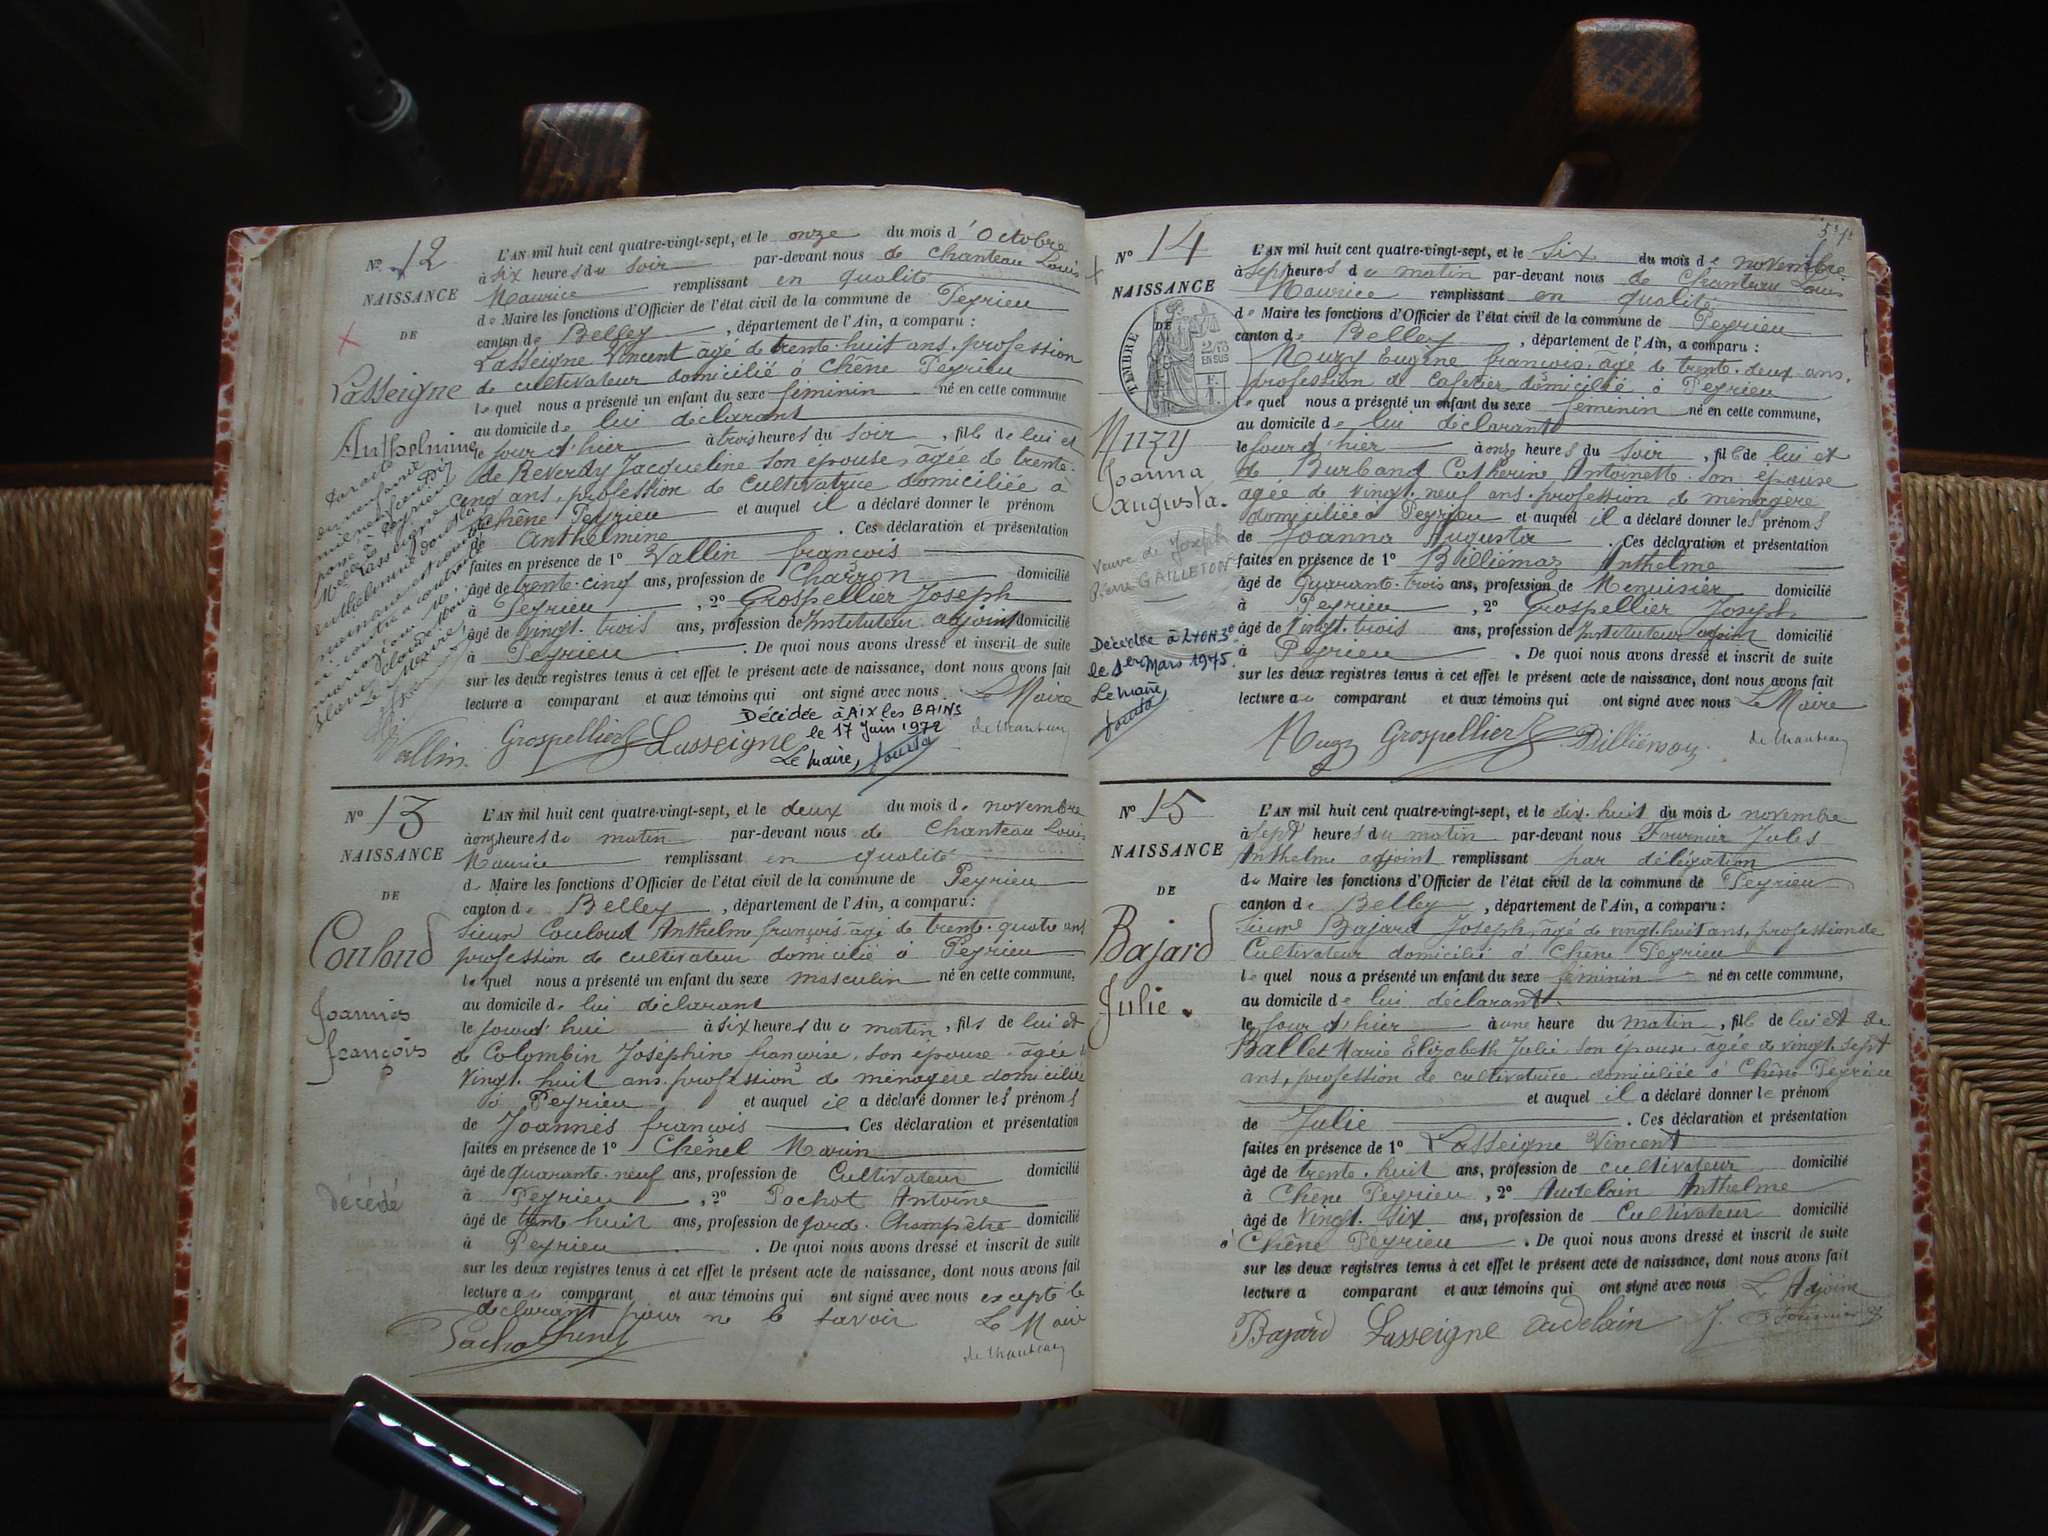 N° 12
NAISSANCE
DE
Lasseigne
Anthelmine
L'AN mil huit cent quatre-vingt-sept, et le onze du mois d'Octobre
à six heures du soir par-devant nous de Chanteau Louis
Maurice remplissant en qualité
de Maire les fonctions d'Officier de l'état civil de la commune de Peyrieu
canton de Belley, département de l'Ain, a comparu :
Lasseigne Vincent âgé de trente-huit ans, profession
de cultivateur domicilié à Chêne Peyrieu
lequel nous a présenté un enfant du sexe féminin né en cette commune
au domicile de lui déclarant
le jour d'hier à trois heures du soir, fille de lui et
de Reverdy Jacqueline son épouse, agée de trente-
cinq ans, profession de cultivatrice domiciliée à
Chêne Peyrieu et auquel il a déclaré donner le prénom
de Anthelmine. Ces déclaration et présentation
faites en présence de 1° Vallin françois
âgé de trente-cinq ans, profession de Charron domicilié
à Peyrieu, 2° Grospellier Joseph
âgé de vingt-trois ans, profession de Instituteur adjoint domicilié
à Peyrieu. De quoi nous avons dressé et inscrit de suite
sur les deux registres tenus à cet effet le présent acte de naissance, dont nous avons fait
lecture au comparant et aux témoins qui ont signé avec nous. Le Maire
Décédée à AIX les BAINS
le 17 Juin 1972
Le Maire,
Vallin Grospellier Lasseigne de Chanteau
N° 13
NAISSANCE
DE
Couloud
Joannès
françois
décédé
L'AN mil huit cent quatre-vingt-sept, et le deux du mois de novembre
à onze heures du matin par-devant nous de Chanteau Louis
Maurice remplissant en qualité
de Maire les fonctions d'Officier de l'état civil de la commune de Peyrieu
canton de Belley, département de l'Ain, a comparu :
Sieur Couloud Anthelme françois âgé de trente-quatre ans
profession de cultivateur domicilié à Peyrieu
lequel nous a présenté un enfant du sexe masculin né en cette commune,
au domicile de lui déclarant
le jourd'hui à six heures du matin, fils de lui et
de Colombin Joséphine françoise, son épouse, âgée de
vingt-huit ans, profession de ménagère domiciliée
à Peyrieu et auquel il a déclaré donner les prénoms
de Joannès françois. Ces déclaration et présentation
faites en présence de 1° Chenel Marin
âgé de quarante-neuf ans, profession de Cultivateur domicilié
à Peyrieu, 2° Pachot Antoine
âgé de trente huit ans, profession de garde-Champêtre domicilié
à Peyrieu. De quoi nous avons dressé et inscrit de suite
sur les deux registres tenus à cet effet le présent acte de naissance, dont nous avons fait
lecture au comparant et aux témoins qui ont signé avec nous excepté le
déclarant pour ne le savoir Le Maire
Pachot Chenel de Chanteau
N° 14
NAISSANCE
DE
TIMBRE
2/10
EN SUS
Muzy
Joanna
Augusta.
Veuve de Joseph
Pierre GAILLETON
Décédée à LYON 3e
le 1er Mars 1975.
Le Maire,
L'AN mil huit cent quatre-vingt-sept, et le Six du mois de novembre
à sept heures du matin par-devant nous de Chanteau Louis
Maurice remplissant en qualité
de Maire les fonctions d'Officier de l'état civil de la commune de Peyrieu
canton de Belley, département de l'Ain, a comparu :
Muzy Eugène françois, âgé de trente-deux ans,
profession de Cafetier domicilié à Peyrieu
lequel nous a présenté un enfant du sexe féminin né en cette commune,
au domicile de lui déclarant
le jour d'hier à onze heures du soir, fille de lui et
de Burband Catherine Antoinette son épouse
agée de vingt-neuf ans, profession de ménagère
domiciliée à Peyrieu et auquel il a déclaré donner les prénoms
de Joanna Augusta. Ces déclaration et présentation
faites en présence de 1° Billiémaz Anthelme
âgé de Quarante-trois ans, profession de Menuisier domicilié
à Peyrieu, 2° Grospellier Joseph
âgé de Vingt-trois ans, profession de Instituteur adjoint domicilié
à Peyrieu. De quoi nous avons dressé et inscrit de suite
sur les deux registres tenus à cet effet le présent acte de naissance, dont nous avons fait
lecture au comparant et aux témoins qui ont signé avec nous Le Maire
Muzy Grospellier Billiémaz de Chanteau
N° 15
NAISSANCE
DE
Bajard
Julie.
L'AN mil huit cent quatre-vingt-sept, et le dix-huit du mois de novembre
à sept heures du matin par-devant nous Fournier Jules
Anthelme adjoint remplissant par délégation
de Maire les fonctions d'Officier de l'état civil de la commune de Peyrieu
canton de Belley, département de l'Ain, a comparu :
Sieur Bajard Joseph, âgé de vingt-huit ans, profession de
Cultivateur domicilié à Chêne Peyrieu
lequel nous a présenté un enfant du sexe féminin né en cette commune,
au domicile de lui déclarant.
le jour d'hier à une heure du matin, fille de lui et de
Ballet Marie Elizabeth Julie son épouse, agée de vingt-sept
ans, profession de cultivatrice domiciliée à Chêne Peyrieu
et auquel il a déclaré donner le prénom
de Julie. Ces déclaration et présentation
faites en présence de 1° Lasseigne Vincent
âgé de trente-huit ans, profession de cultivateur domicilié
à Chêne Peyrieu, 2° Audelain Anthelme
âgé de Vingt-Six ans, profession de Cultivateur domicilié
à Chêne Peyrieu. De quoi nous avons dressé et inscrit de suite
sur les deux registres tenus à cet effet le présent acte de naissance, dont nous avons fait
lecture au comparant et aux témoins qui ont signé avec nous L'Adjoint
Bajard Lasseigne Audelain J. Fournier